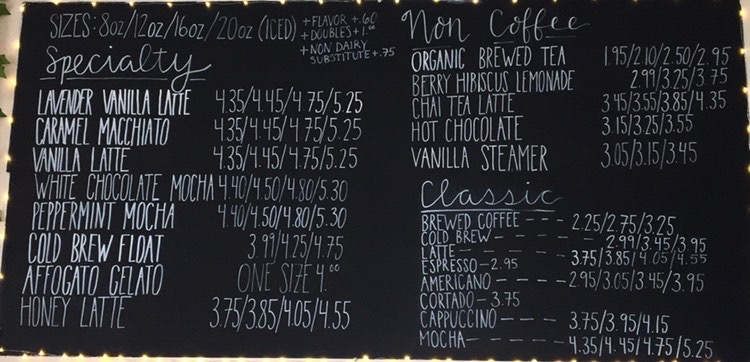 SIZES: 8oz/12oz/16oz/20oz (ICED)
+FLAVOR +.60
+DOUBLES+1.00
+NON DAIRY
SUBSTITUTE+.75
Specialty
LAVENDER VANILLA LATTE 4.35/4.45/4.75/5.25
CARAMEL MACCHIATO 4.35/4.45/4.75/5.25
VANILLA LATTE 4.35/4.45/4.75/5.25
WHITE CHOCOLATE MOCHA 4.40/4.50/4.80/5.30
PEPPERMINT MOCHA 4.40/4.50/4.80/5.30
COLD BREW FLOAT 3.99/4.25/4.75
AFFOGATO GELATO ONE SIZE 4.00
HONEY LATTE 3.75/3.85/4.05/4.55
Non Coffee
ORGANIC BREWED TEA 1.95/2.10/2.50/2.95
BERRY HIBISCUS LEMONADE 2.99/3.25/3.75
CHAI TEA LATTE 3.45/3.55/3.85/4.35
HOT CHOCOLATE 3.15/3.25/3.55
VANILLA STEAMER 3.05/3.15/3.45
Classic
BREWED COFFEE --- 2.25/2.75/3.25
COLD BREW- - - - - 2.99/3.45/3.95
LATTE- - - - - - 3.75/3.85/4.05/4.55
ESPRESSO-2.95
AMERICANO - - - - 2.95/3.05/3.45/3.95
CORTADO-3.75
CAPPUCCINO- - - - 3.75/3.95/4.15
MOCHA- - - - - - 4.35/4.45/4.75/5.25